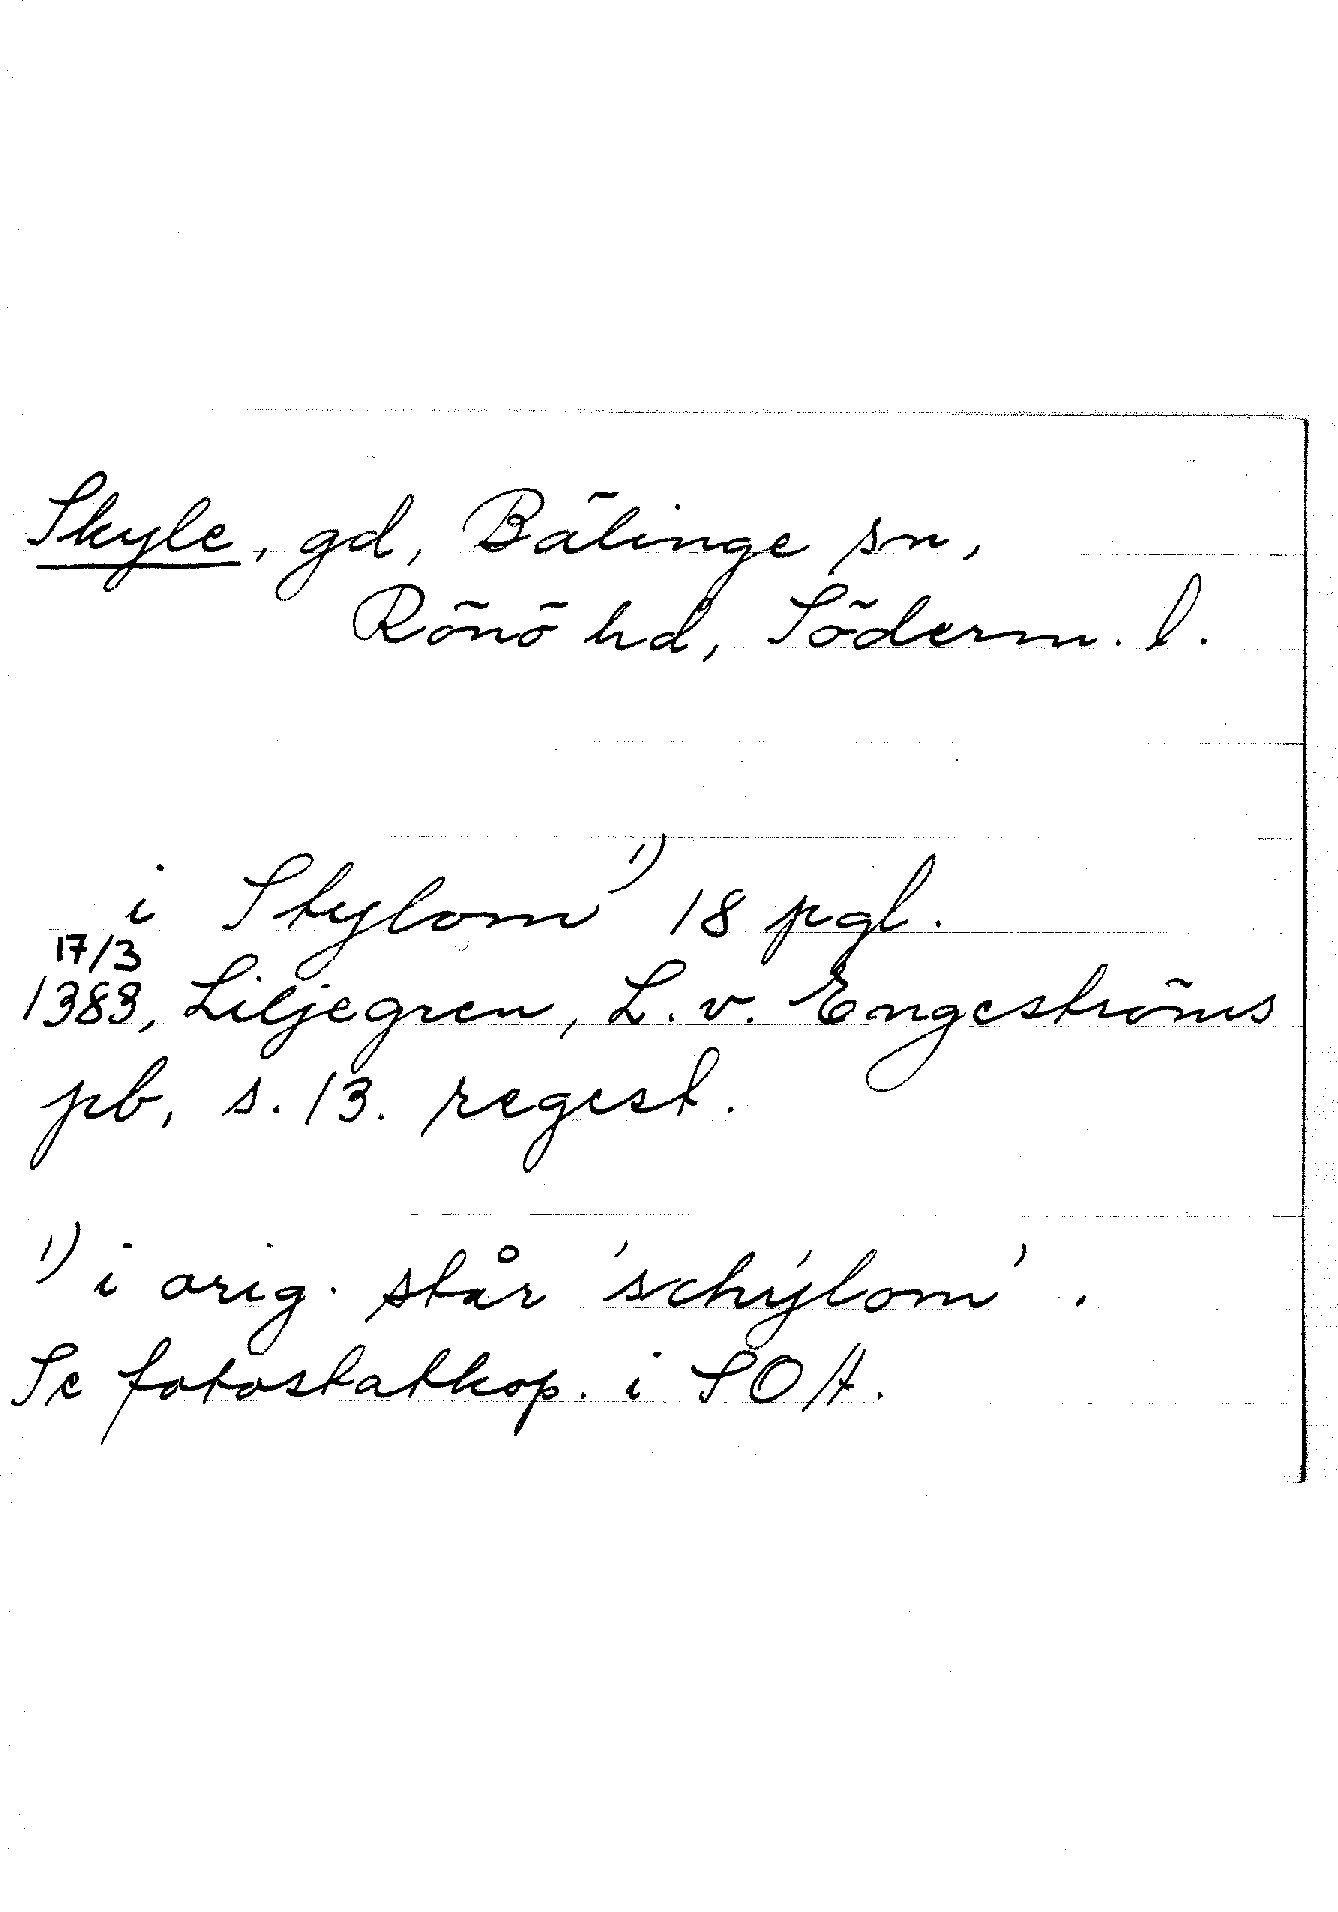 Skyle, gd, Bälinge sn,
Rönö hd, Söderm. l.
i Stylom¹⁾ 18 pgl.
17/3
1383, Liljegren, L. v. Engeströms
pb, s. 13. regest.
¹⁾ i orig. står 'schýlom'.
Se fotostatkop. i SOA.